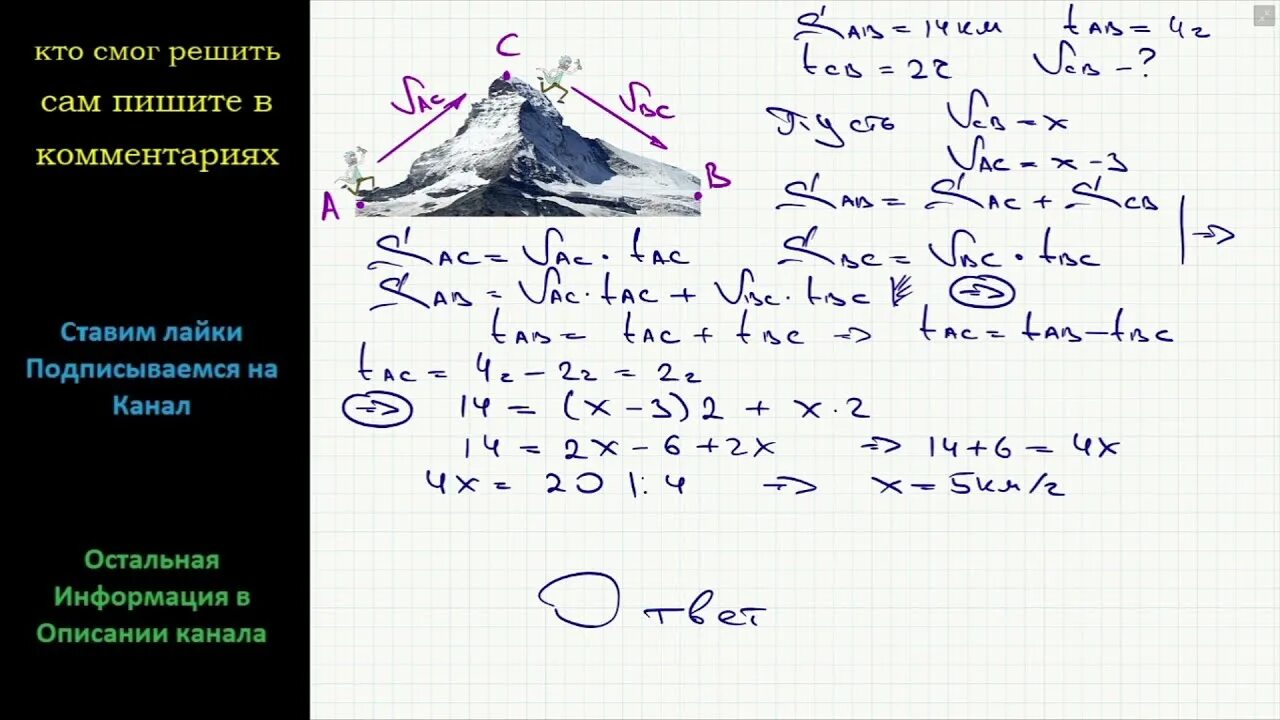 кто смог решить
сам пишите в
комментариях
Ставим лайки
Подписываемся на
Канал
Остальная
Информация в
Описании канала
C
V_AC
V_BC
A
B
S_AB = 14км t_AB = 4ч
t_CB = 2ч V_CB - ?
Пусть V_CB = x
V_AC = x - 3
S_AB = S_AC + S_CB | =>
S_AC = V_AC · t_AC S_BC = V_BC · t_BC
S_AB = V_AC · t_AC + V_BC · t_BC =>
t_AB = t_AC + t_BC => t_AC = t_AB - t_BC
t_AC = 4ч - 2ч = 2ч
=> 14 = (x - 3) 2 + x · 2
14 = 2x - 6 + 2x => 14 + 6 = 4x
4x = 20 |: 4 => x = 5км/ч
Ответ